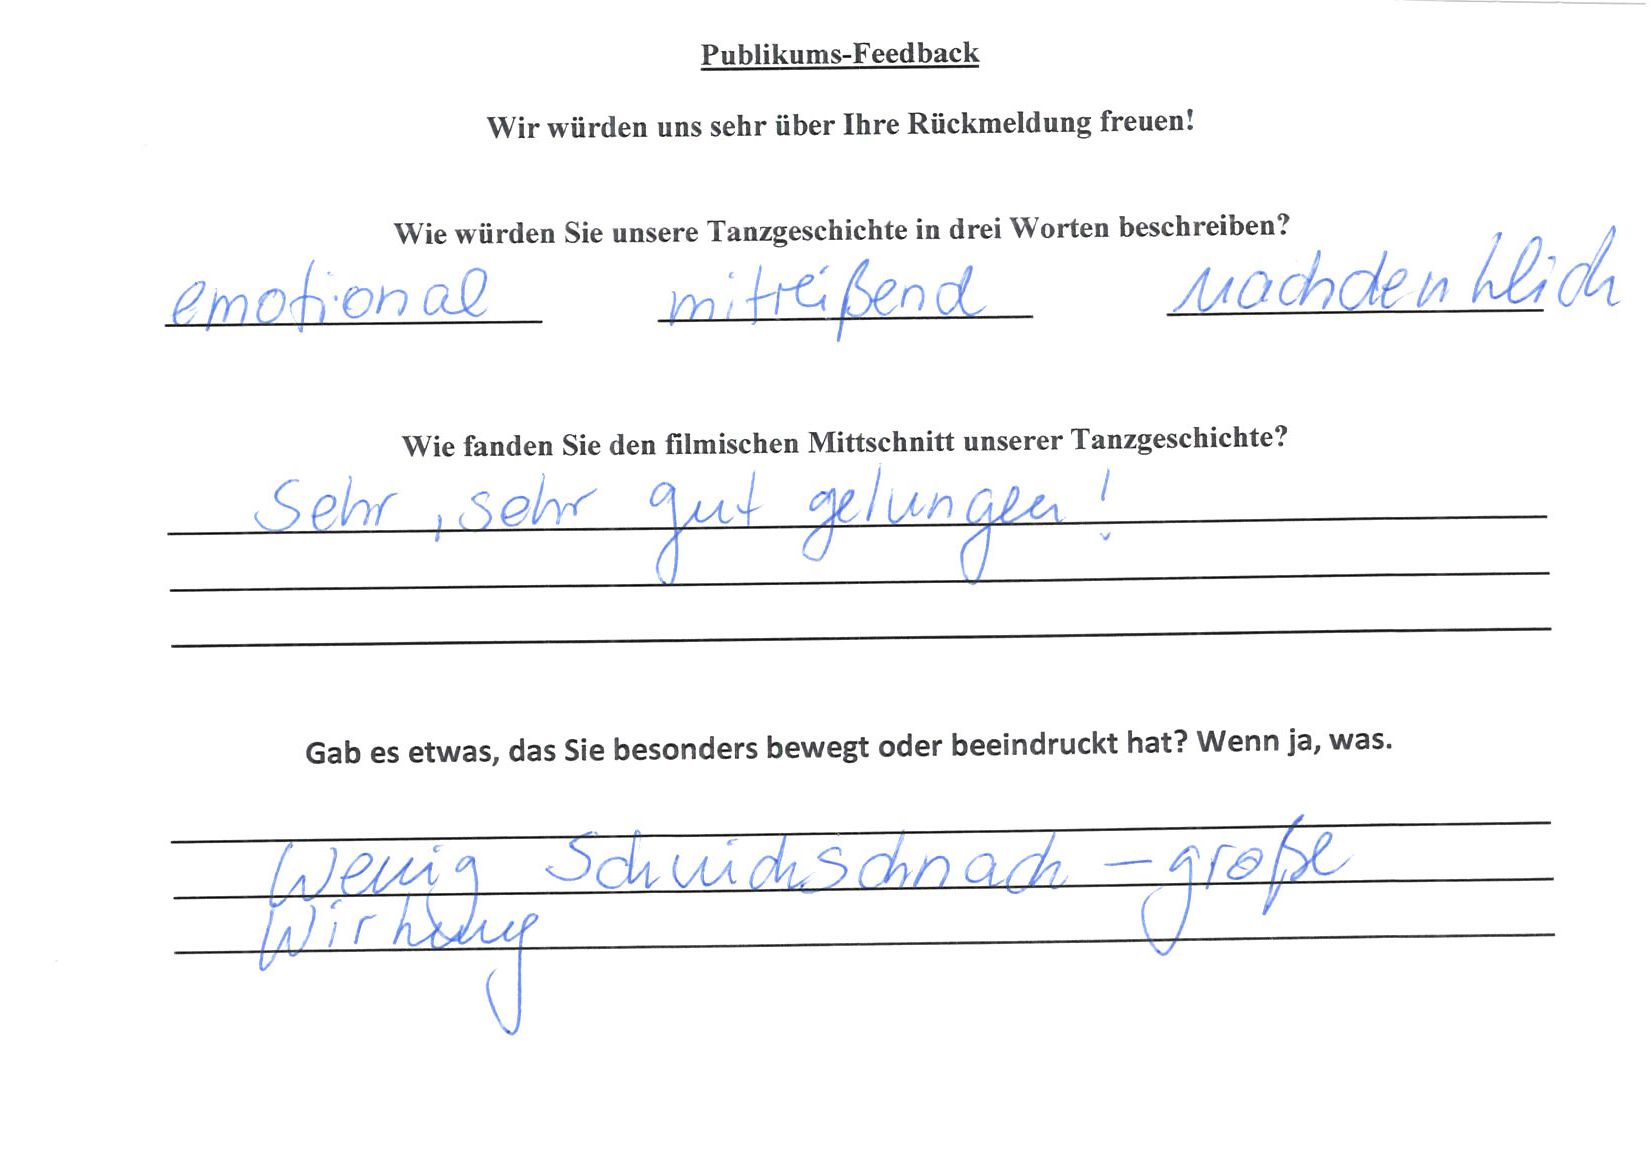 Publikums-Feedback
Wir würden uns sehr über Ihre Rückmeldung freuen!
Wie würden Sie unsere Tanzgeschichte in drei Worten beschreiben?
emotional mitreißend nachdenklich
Wie fanden Sie den filmischen Mittschnitt unserer Tanzgeschichte?
Sehr, sehr gut gelungen!
Gab es etwas, das Sie besonders bewegt oder beeindruckt hat? Wenn ja, was.
Wenig Schnickschnack – große
Wirkung